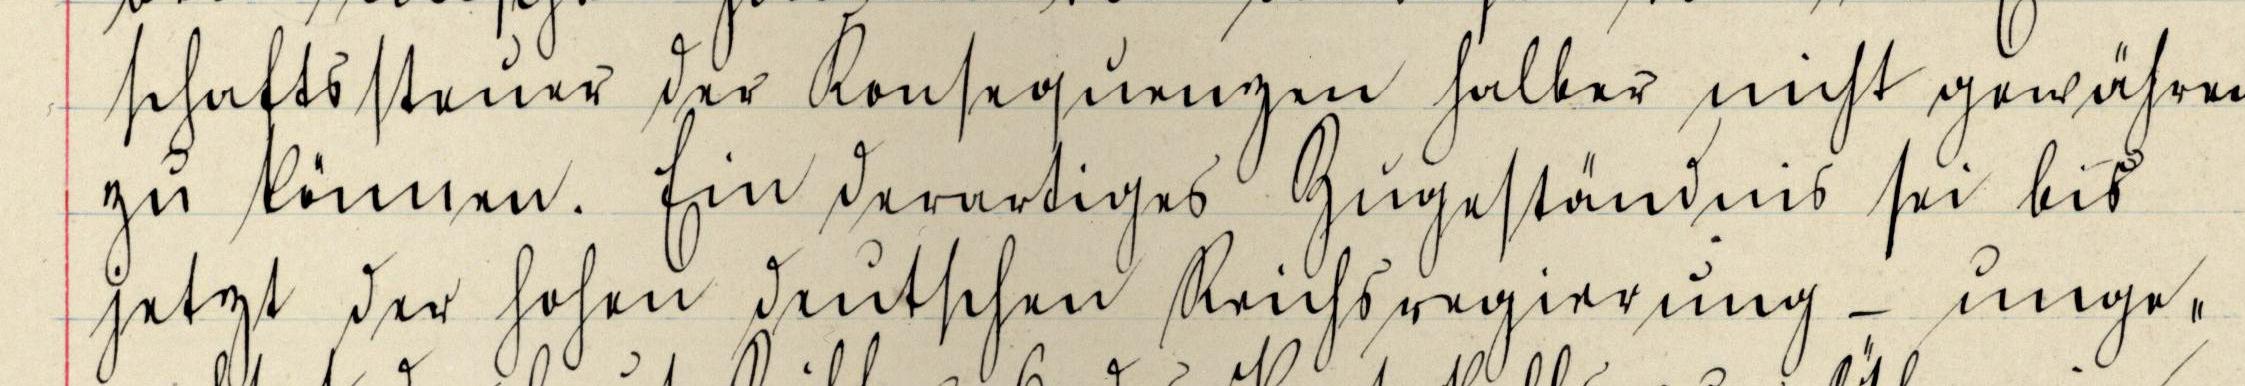 schaftssteuer der Konsequenzen halber nicht gewähren
zu können. Ein derartiges Zugeständnis sei bis
jetzt der hohen deutschen Reichsregierung – unge„